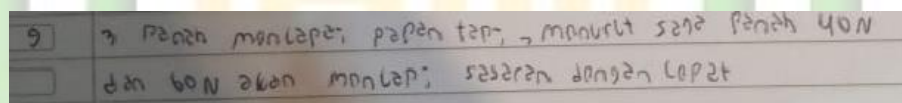 9 3 Panah mencapai papan tapi, menurut saya Panah 40N
dan 60N akan mencapi sasaran dengan cepat